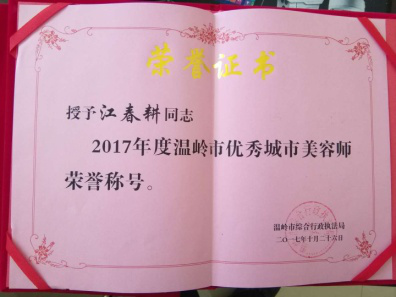 荣誉证书
授予江春耕同志
2017年度温岭市优秀城市美容师
荣誉称号。
温岭市综合行政执法局
二〇一七年十月二十六日